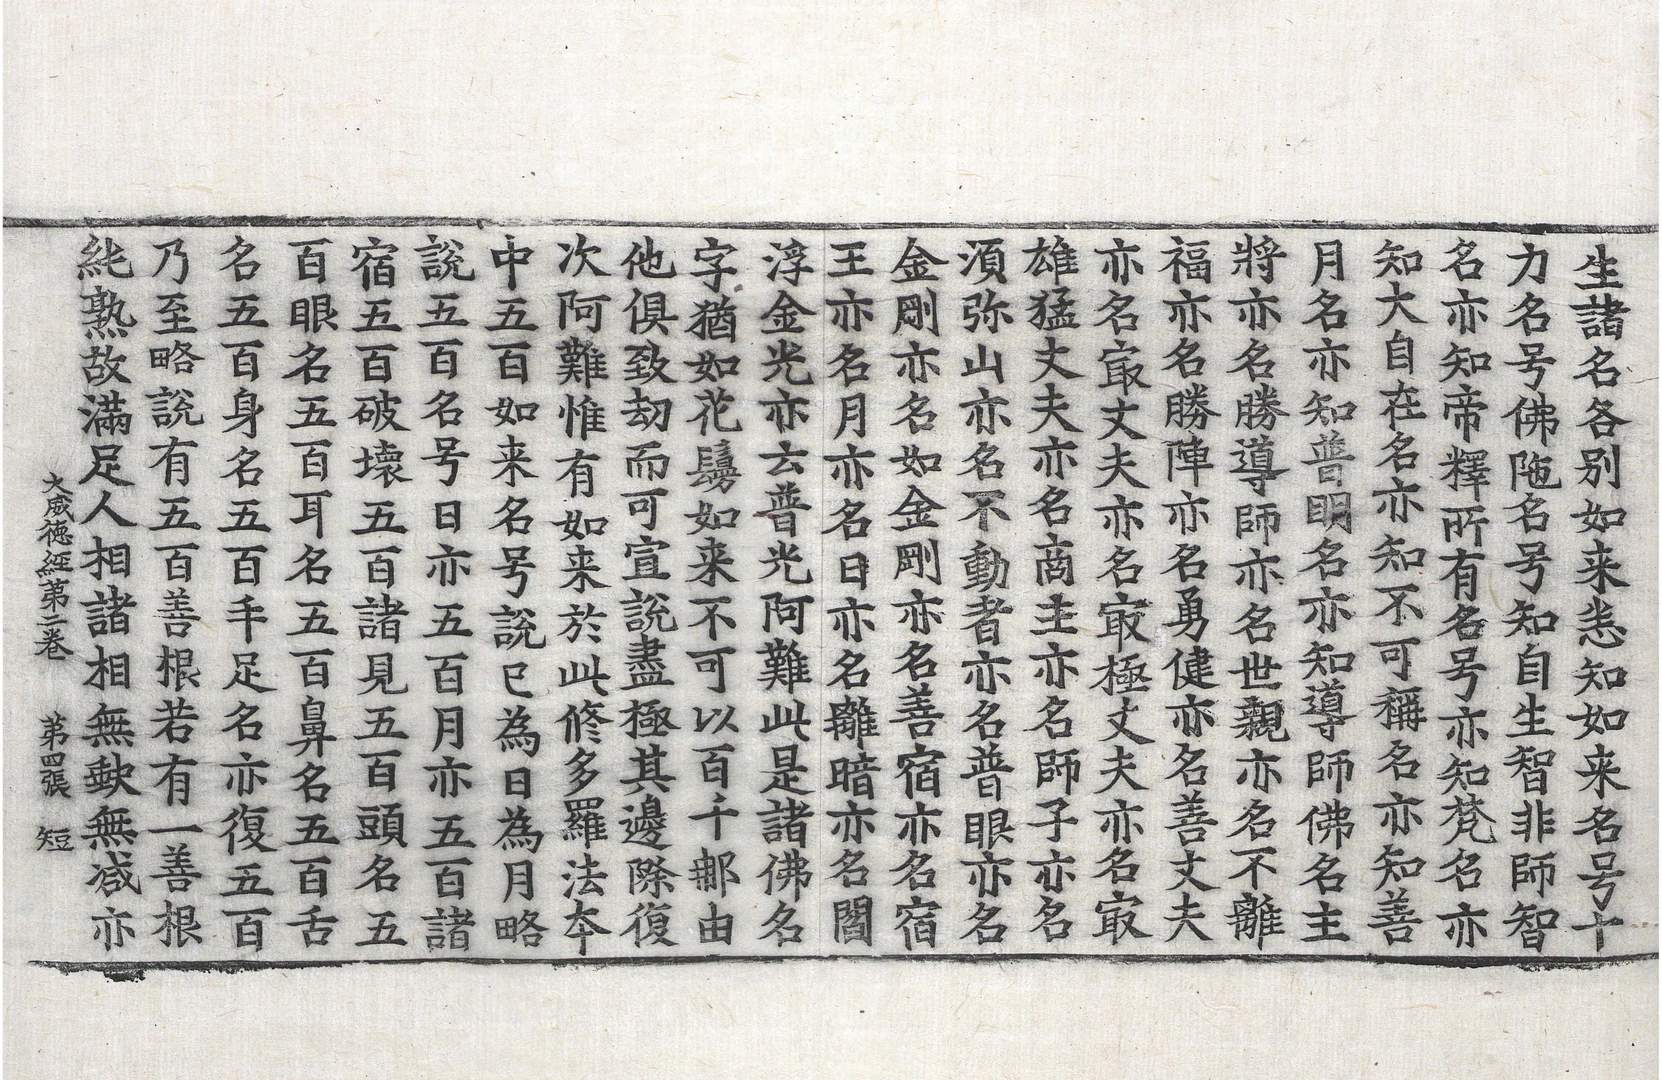 生諸名各別如来悉知如来名号十
力名号佛陁名号知自生智非師智
名亦知帝釋所有名号亦知梵名亦
知大自在名亦知不可稱名亦知善
月名亦知普明名亦知導師佛名主
將亦名勝導師亦名世親亦名不離
福亦名勝陣亦名勇健亦名善丈夫
亦名寂丈夫亦名寂極丈夫亦名寂
雄猛丈夫亦名商主亦名師子亦名
湏弥山亦名不動者亦名普眼亦名
金剛亦名如金剛亦名善宿亦名宿
王亦名月亦名日亦名離暗亦名閻
浮金光亦云普光阿難此是諸佛名
字猶如花鬘如来不可以百千郍由
他俱致劫而可宣說盡極其邊際復
次阿難惟有如来於此修多羅法夲
中五百如来名号說已為日為月略
說五百名号日亦五百月亦五百諸
宿五百破壞五百諸見五百頭名五
百眼名五百耳名五百鼻名五百舌
名五百身名五百手足名亦復五百
乃至略說有五百善根若有一善根
純熟故滿足人相諸相無缺無減亦
大威德經第二卷　第四張　短